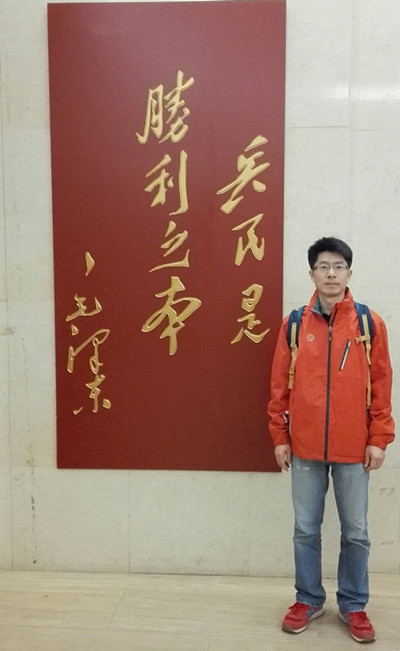 兵民是
勝利之本
毛澤东